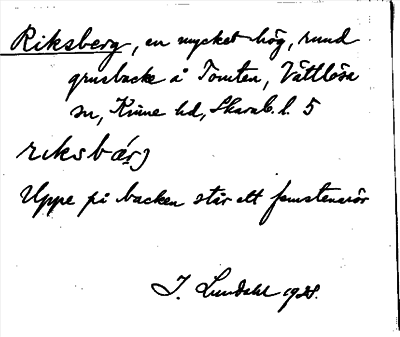 Riksberg, en mycket hög, rund
grusbacke å Tomten, Vättlösa
sn, Kinne hd, Skarab. l. 5
rɩksbárj
Uppe på backen står ett femstensrör
I. Lundahl 1928.